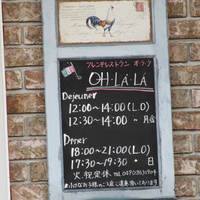 フレンチレストラン オ・ラ・ラ
OH·LÀ·LÀ
Dejeuner
12:00~14:00(L.O)
12:30~14:00~
Diner
18:00~21:00(L.O)
17:30~19:30 ・日
火.祝定休